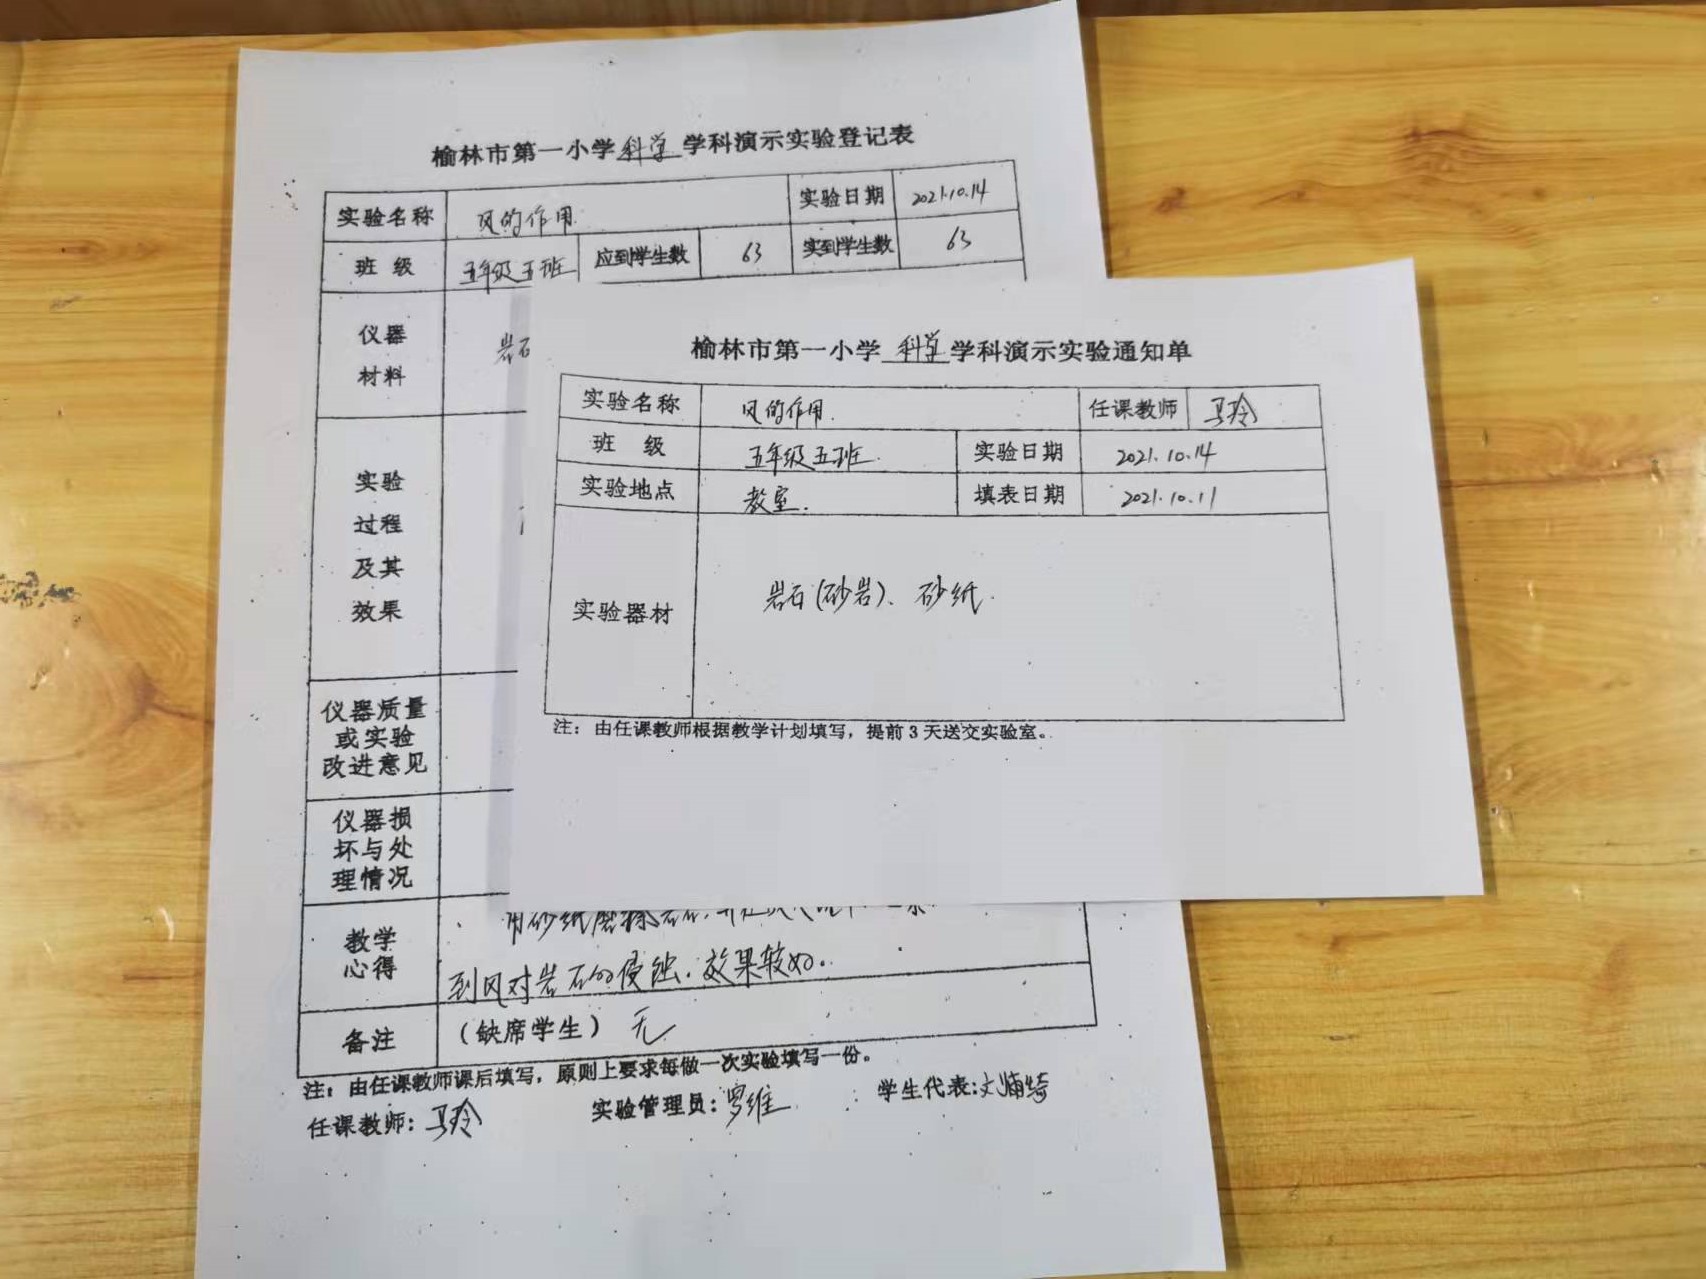 榆林市第一小学科学学科演示实验登记表
实验名称 风的作用 实验日期 2021.10.14
班 级 五年级五班 应到学生数 63 实到学生数 63
仪器
材料
岩石
实验
过程
及其
效果
仪器质量
或实验
改进意见
仪器损
坏与处
理情况
教学
心得
用砂纸磨擦岩石
到风对岩石的侵蚀.效果较好.
备注 (缺席学生) 无
注：由任课教师课后填写，原则上要求每做一次实验填写一份。
任课教师：马玲 实验管理员：罗维 学生代表：文
榆林市第一小学科学学科演示实验通知单
实验名称 风的作用. 任课教师 马玲
班 级 五年级五班. 实验日期 2021.10.14
实验地点 教室. 填表日期 2021.10.11
实验器材 岩石(砂岩)、砂纸.
注：由任课教师根据教学计划填写，提前3天送交实验室。